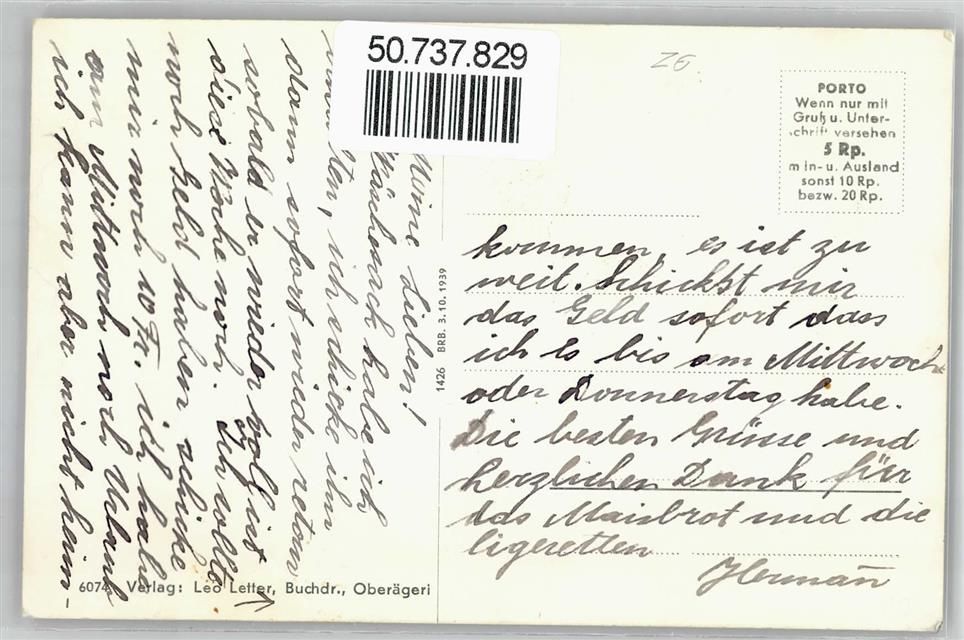 50.737.829
ZG.
PORTO
Wenn nur mit
Gruß u. Unter-
schrift versehen
5 Rp.
m in- u. Ausland
sonst 10 Rp.
bezw. 20 Rp.
Meine Lieben!
habe ich
ten, ich schicke ihn
dann sofort wieder retour
sobald er wieder voll ist
diese Woche noch. Ihr sollte
noch Geld haben schicke
mir noch 10 Fr. ich habe
am Mittwoch noch Urlaub
ich kann aber nicht heim-
kommen, es ist zu
weit. Schickst mir
das Geld sofort dass
ich es bis am Mittwoch
oder Donnerstag habe.
Die besten Grüsse und
herzlichen Dank für
das Maisbrot und die
Hermann
1426 BRB. 3.10.1939
6074 Verlag: Leo Letter, Buchdr., Oberägeri